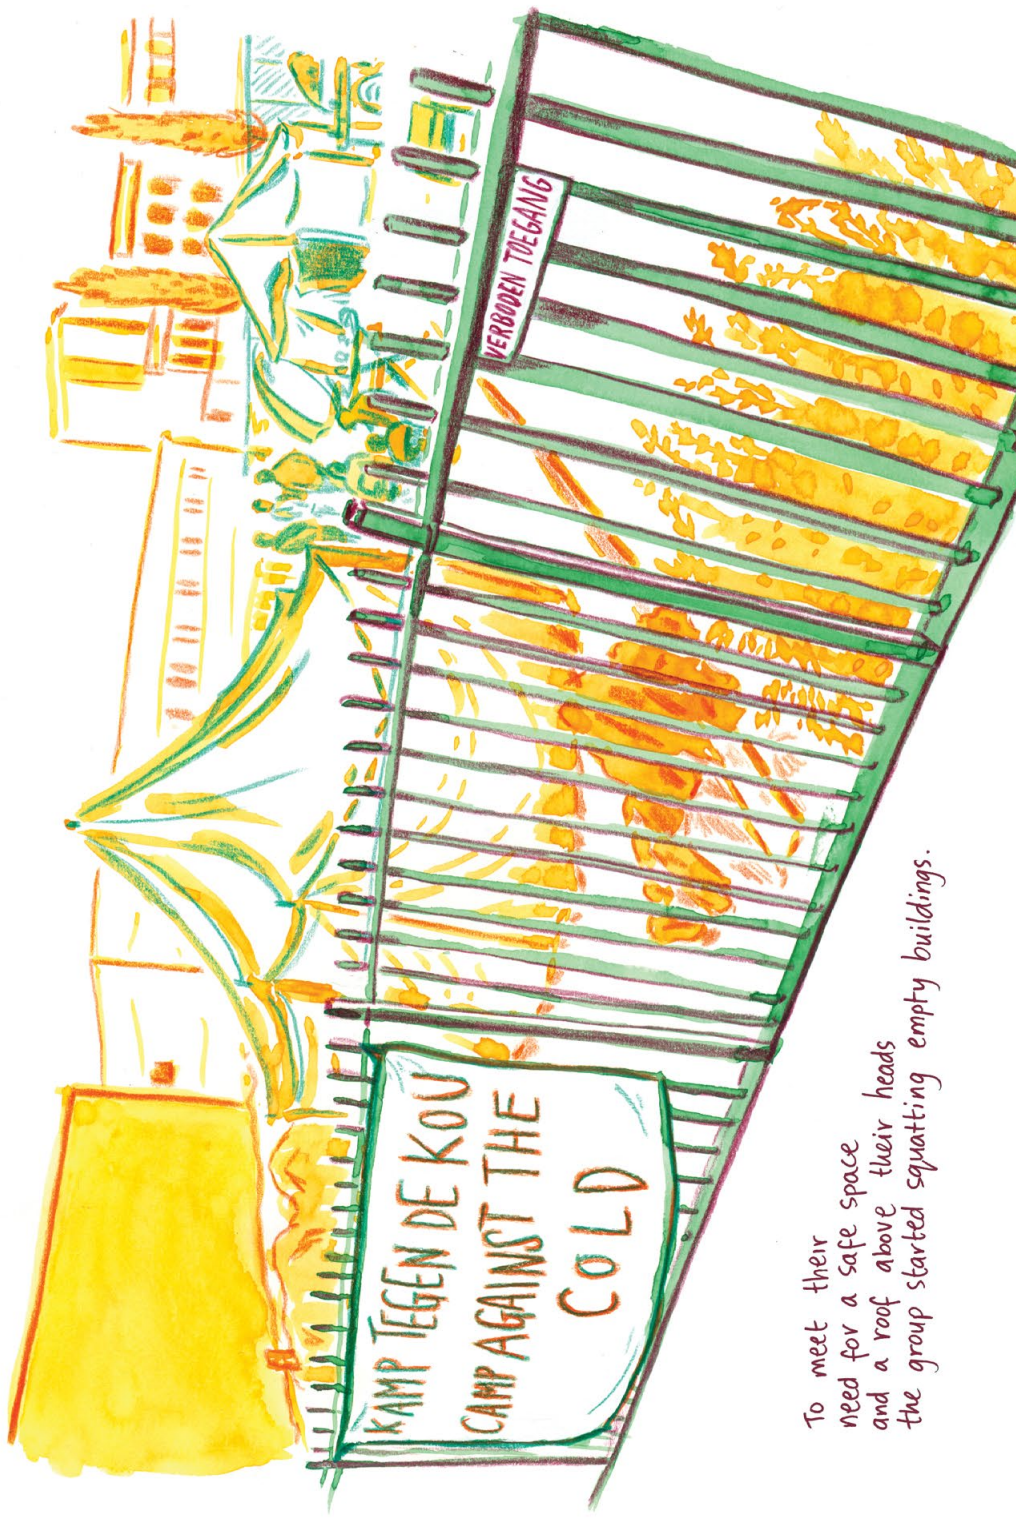 VERBODEN TOEGANG
KAMP TEGEN DE KOU
CAMP AGAINST THE
COLD
To meet their
need for a safe space
and a roof above their heads
the group started squatting empty buildings.